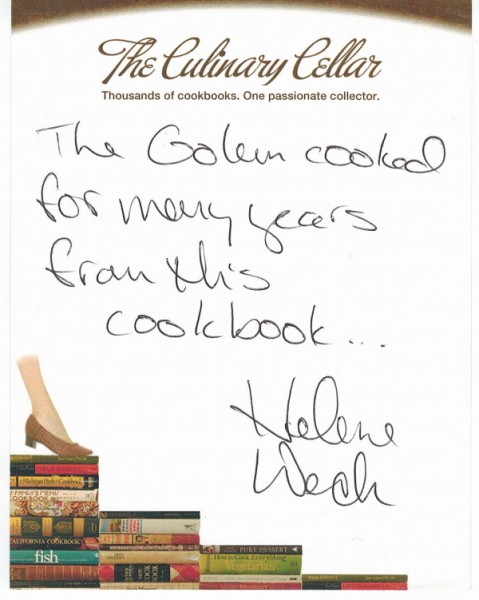 The Culinary Cellar
Thousands of cookbooks. One passionate collector.
The Golem cooked
for many years
from this
cookbook...
Helene
Wech
Michigan Herb Cookbook
COOKBOOK
CALIFORNIA COOKBOOK
fish
PURE DESSERT
How to Cook Everything
Vegetarian